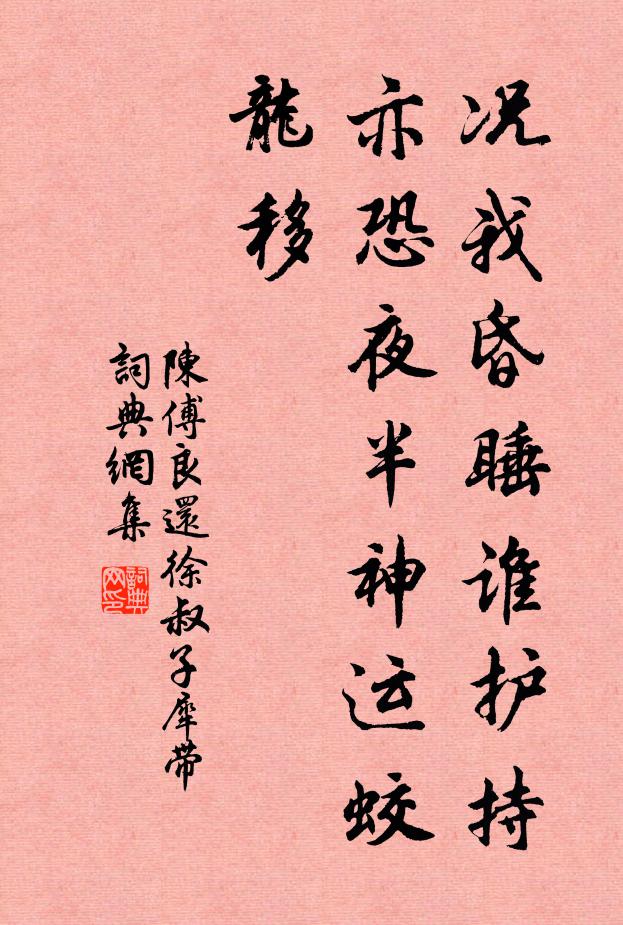 况我昏睡谁护持
亦恐夜半神运蛟
龍移
陳傅良還徐叔子犀带
詞典網集
詞典网印